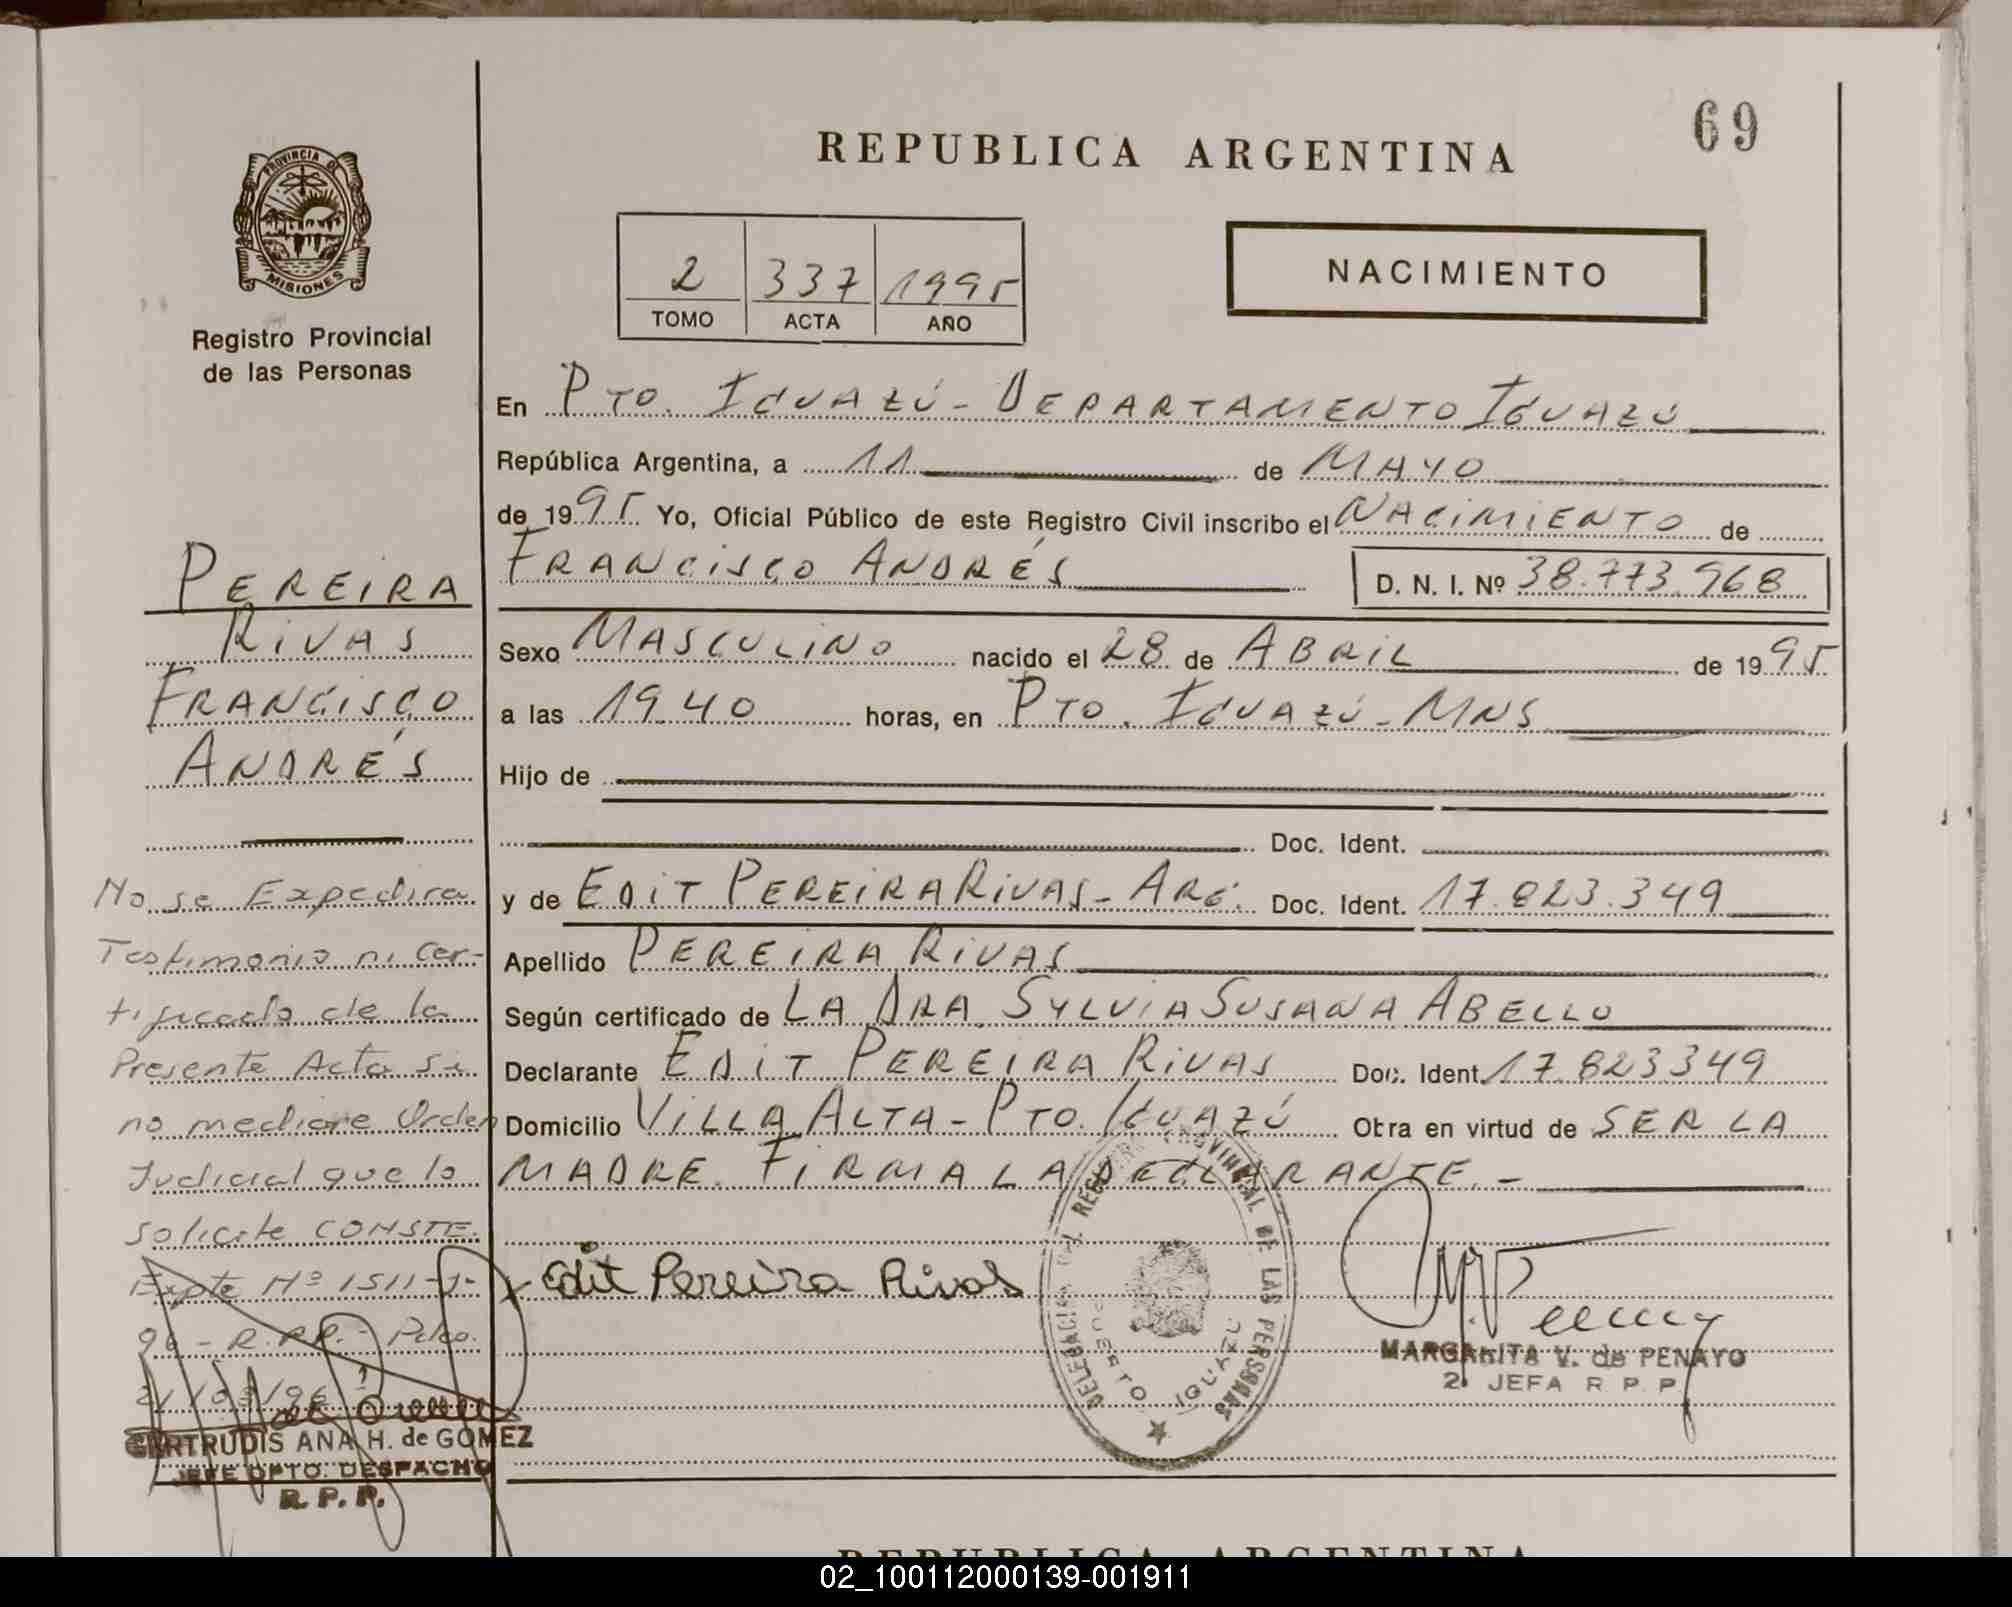 69
REPUBLICA ARGENTINA
PROVINCIA DE
MISIONES
Registro Provincial
de las Personas
2 337 1995
TOMO ACTA AÑO
NACIMIENTO
En PTO. IGUAZÚ - DEPARTAMENTO IGUAZÚ
República Argentina, a 11 de MAYO
de 1995 Yo, Oficial Público de este Registro Civil inscribo el NACIMIENTO de
FRANCISCO ANDRÉS D. N. I. Nº 38.773.968
Sexo MASCULINO nacido el 28 de ABRIL de 1995
a las 19.40 horas, en PTO. IGUAZÚ - MNS
Hijo de
Doc. Ident.
y de EDIT PEREIRA RIVAS - ARG. Doc. Ident. 17.823.349
Apellido PEREIRA RIVAS
Según certificado de LA DRA. SYLVIA SUSANA ABELLO
Declarante EDIT PEREIRA RIVAS Doc. Ident. 17.823349
Domicilio VILLA ALTA - PTO. IGUAZÚ Otra en virtud de SER LA
MADRE. FIRMA LA DECLARANTE. -
Edit Pereira Rivas
DELEGACION REGISTRO PROVINCIAL DE LAS PERSONAS
PUERTO IGUAZU
MARGARITA V. de PENAYO
2ª JEFA R. P. P.
PEREIRA
RIVAS
FRANCISCO
ANDRÉS
No se Expedira
Testimonio ni Cer-
tificado de la
Presente Acta si
no mediare Orden
Judicial que lo
solicite CONSTE.
Expte Nº 1511-J-
96 - R.P.P. - Pdas.
21/03/96
GERTRUDIS ANA H. de GOMEZ
JEFE DPTO. DESPACHO
R. P. P.
REPUBLICA ARGENTINA
02_100112000139-001911